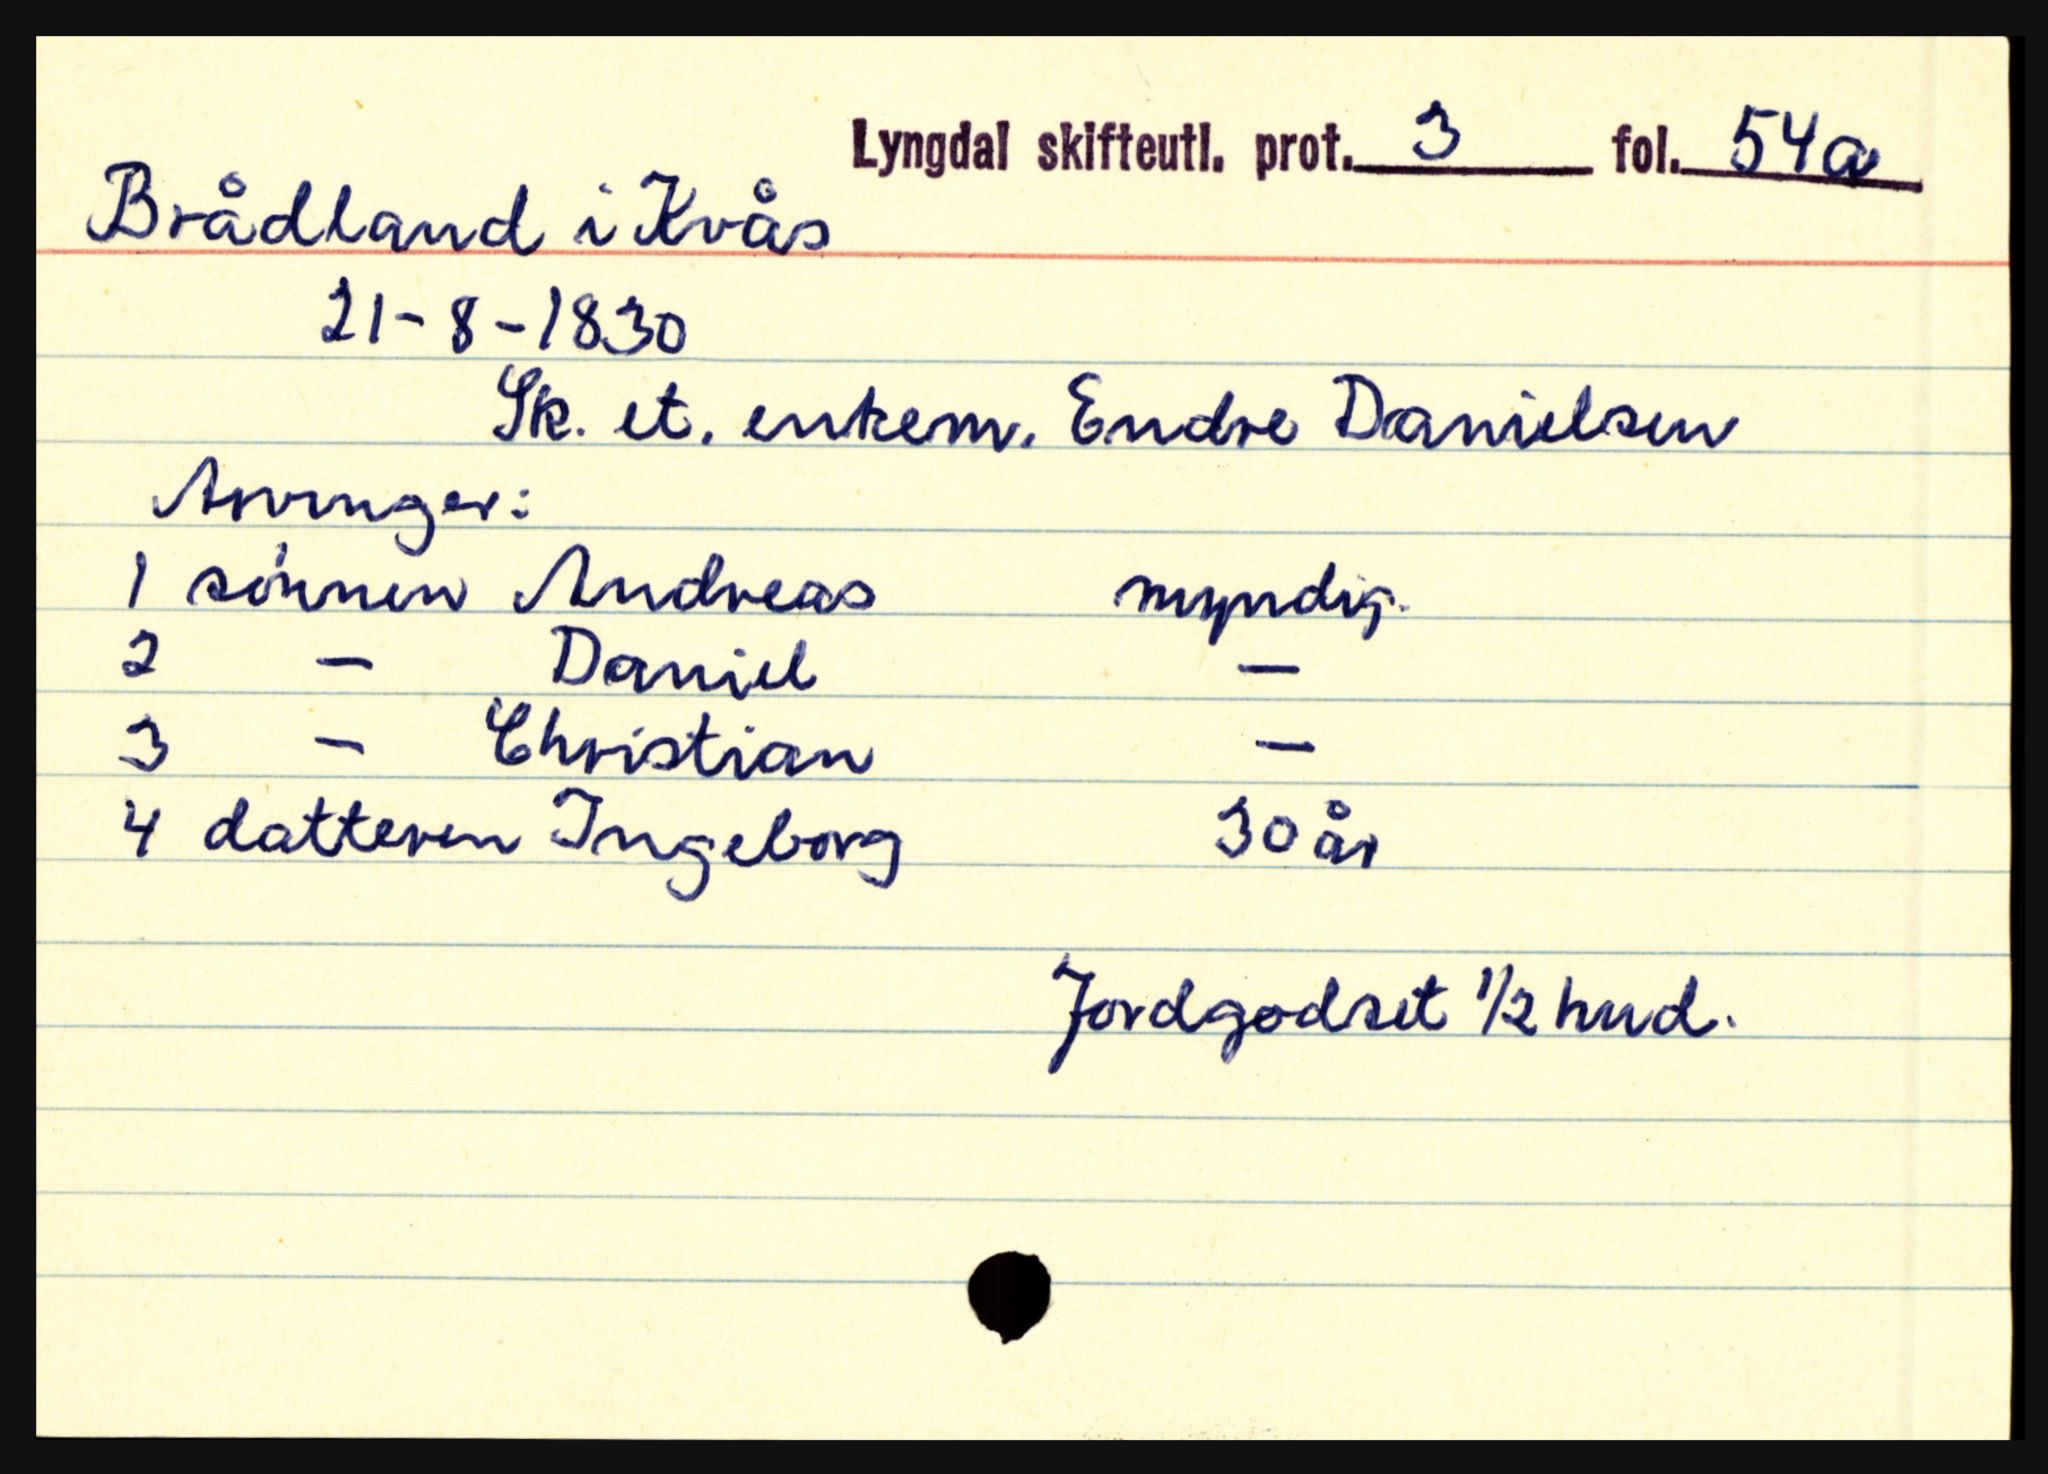 Lyngdal skifteutl. prot. 3 fol. 54a
Brådland i Kvås
21-8-1830
Sk. et. enkem. Endre Danielsen
Arvinger:
1 sönnen Andreas myndig.
2 — Daniel —
3 — Christian —
4 datteren Ingeborg 30 år
Jordgodset 1/2 hud.